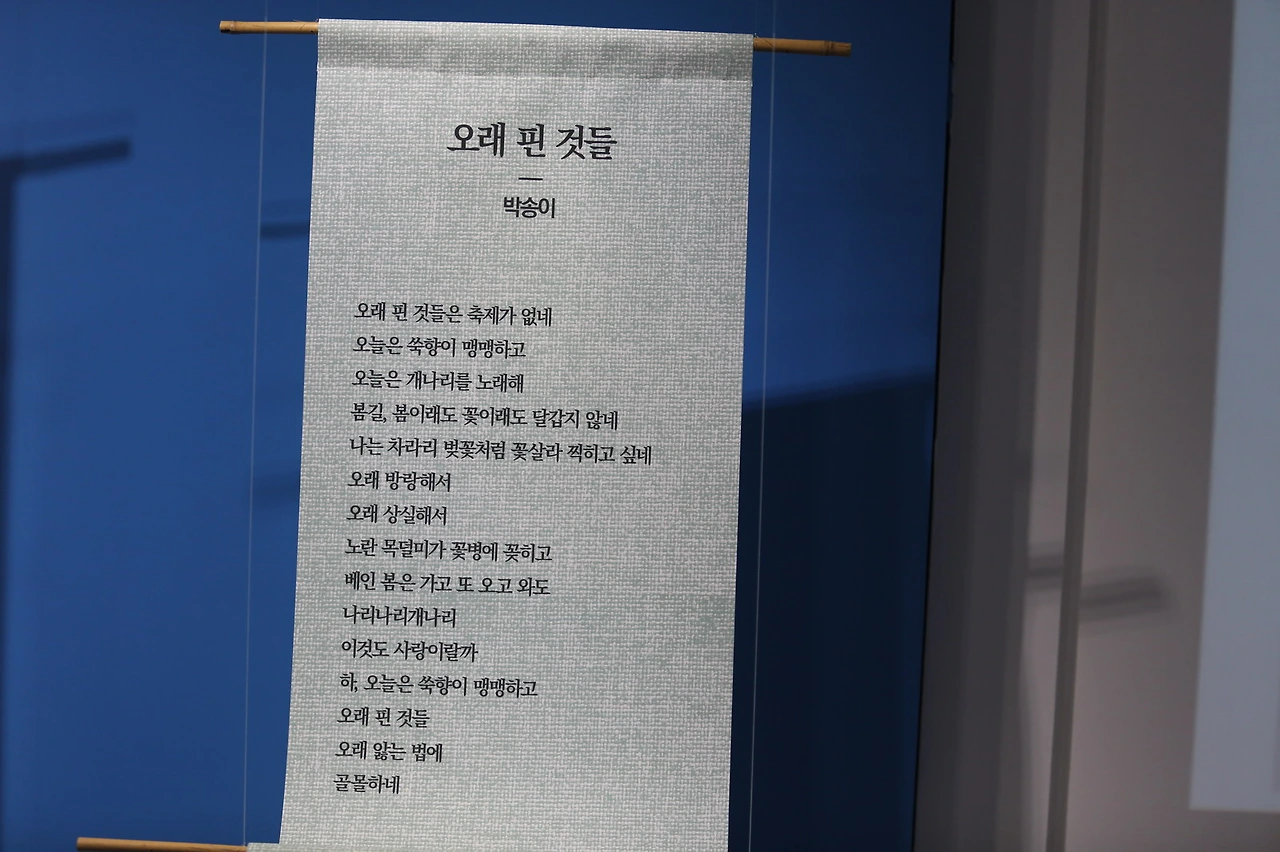 오래 핀 것들
박송이
오래 핀 것들은 축제가 없네
오늘은 쑥향이 맹맹하고
오늘은 개나리를 노래해
봄길, 봄이래도 꽃이래도 달갑지 않네
나는 차라리 벚꽃처럼 꽃살라 찍히고 싶네
오래 방랑해서
오래 상실해서
노란 목덜미가 꽃병에 꽂히고
베인 봄은 가고 또 오고 와도
나리나리개나리
이것도 사랑이랄까
하, 오늘은 쑥향이 맹맹하고
오래 핀 것들
오래 앓는 법에
골몰하네